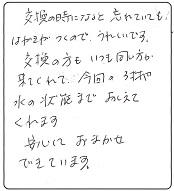 交換の時になると忘れていても、
はがきがつくので、うれしいです。
交換の方もいつも同じ方が
来てくれて、今回の
水の状態までおしえて
くれます
安心しておまかせ
できています。